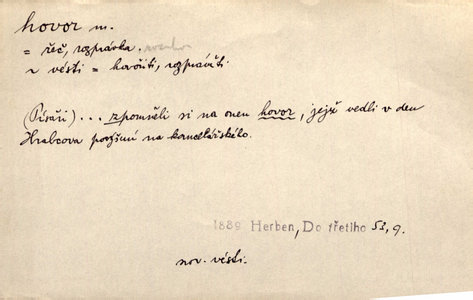 hovor m.
= řeč, rozprávka.
~ vésti = hovořiti, rozprávěti.
(Písaři) ... zpomněli si na onen hovor, jejž vedli v den
Hrabcova povýšení na kancelářského.
1889 Herben, Do třetího 51, 9.
nov. vésti.